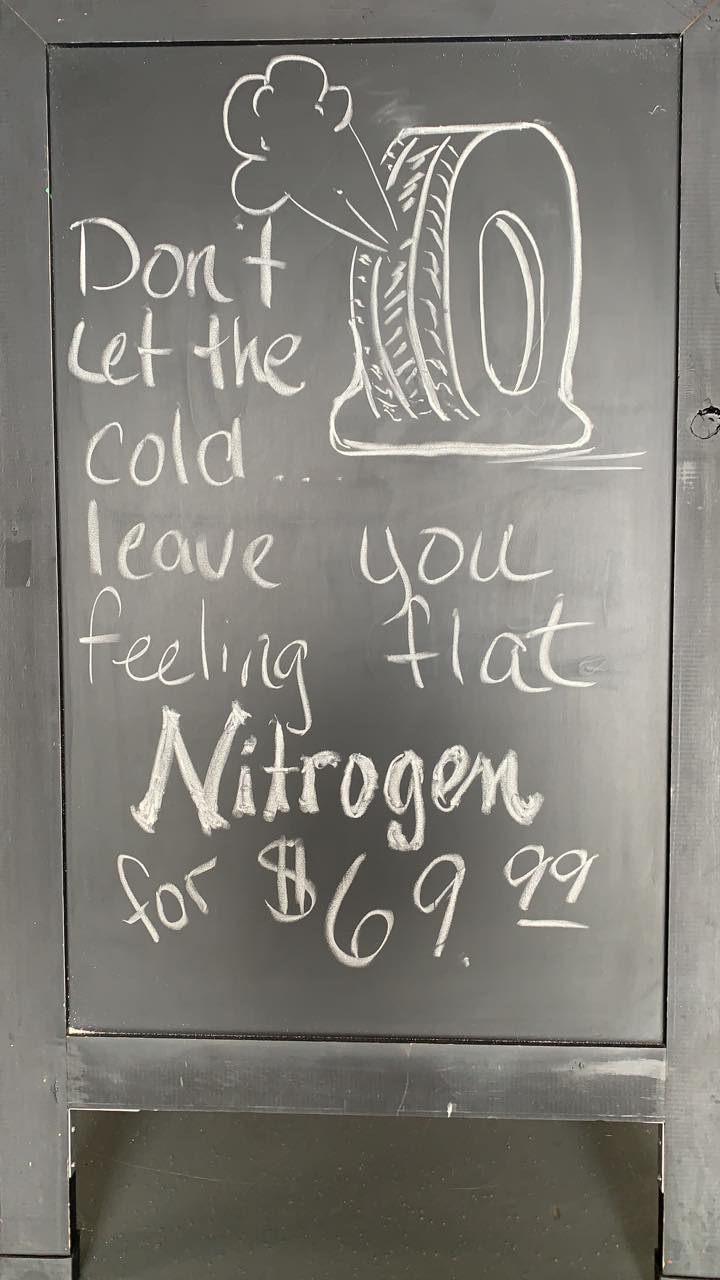 Don't
Let the
cold...
leave you
feeling flat
Nitrogen
for $69.99